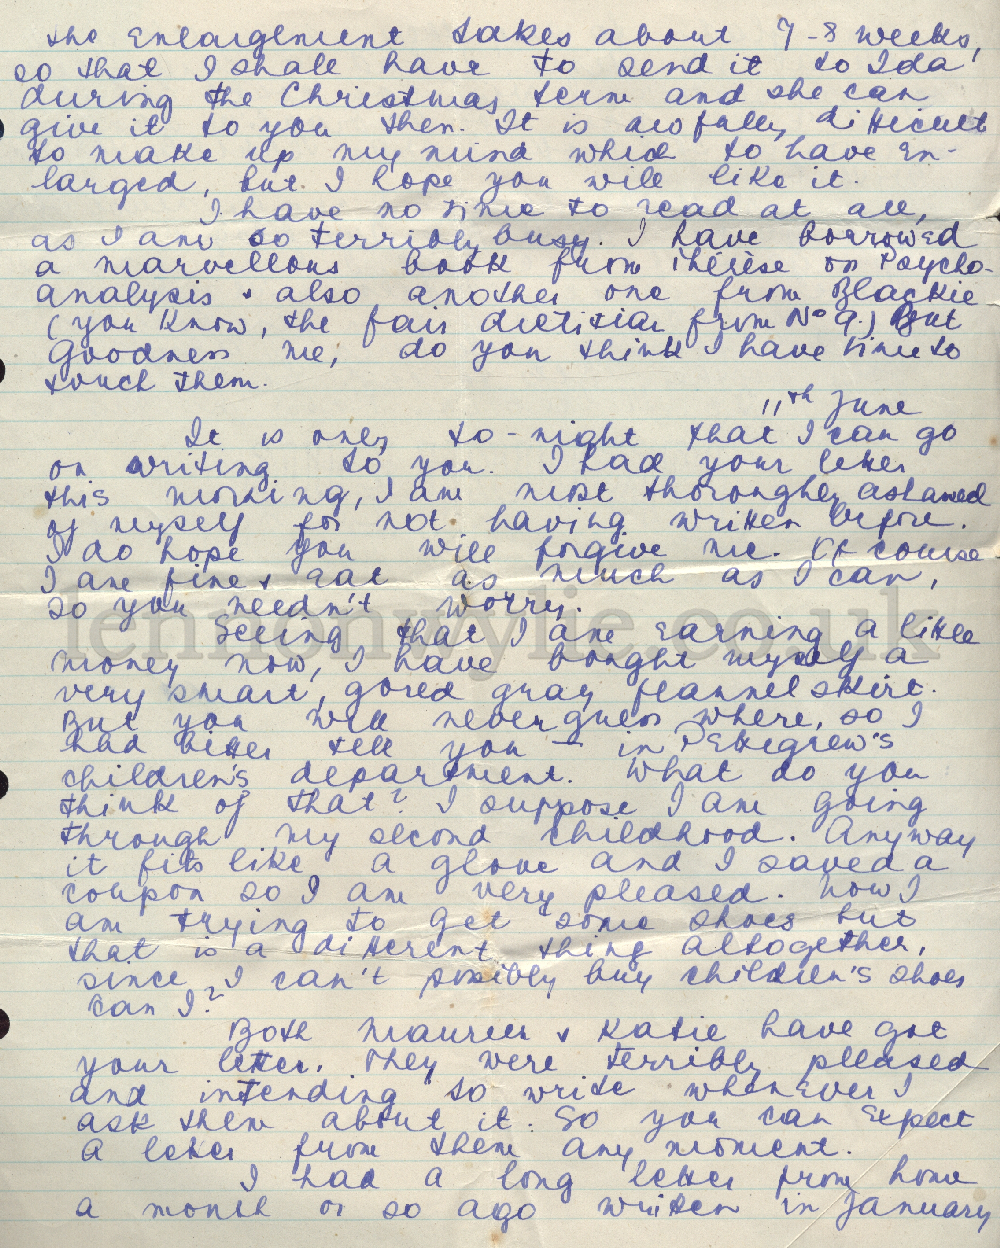 the enlargement takes about 7-8 weeks,
so that I shall have to send it to Ida
during the Christmas term and she can
give it to you then. It is awfully difficult
to make up my mind which to have en-
larged, but I hope you will like it.
I have no time to read at all,
as I am so terribly busy. I have borrowed
a marvellous book from Therese on Psycho-
analysis & also another one from Blackie
(you know, the fair dietitian from No 9.) But
Goodness me, do you think I have time to
touch them.
11th June
It is only to-night that I can go
on writing to you. I had your letter
this morning, I am most thoroughly ashamed
of myself for not having written before.
I do hope you will forgive me. Of course
I am fine & eat as much as I can,
so you needn't worry.
lennonwylie.co.uk
Seeing that I am earning a little
money now, I have bought myself a
very smart, gored gray flannel skirt.
But you will never guess where, so I
had better tell you - in Pettigrew's
children's department. What do you
think of that? I suppose I am going
through my second childhood. Anyway
it fits like a glove and I saved a
coupon so I am very pleased. Now I
am trying to get some shoes but
that is a different thing altogether,
since I can't possibly buy children's shoes
can I?
Both Maureen & Katie have got
your letter. They were terribly pleased
and intending to write whenever I
ask them about it. So you can expect
a letter from them any moment.
I had a long letter from home
a month or so ago written in January